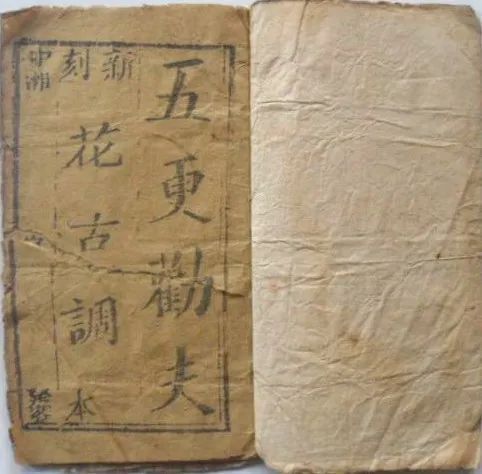 五更勸夫
新刻
花古調本
中湘